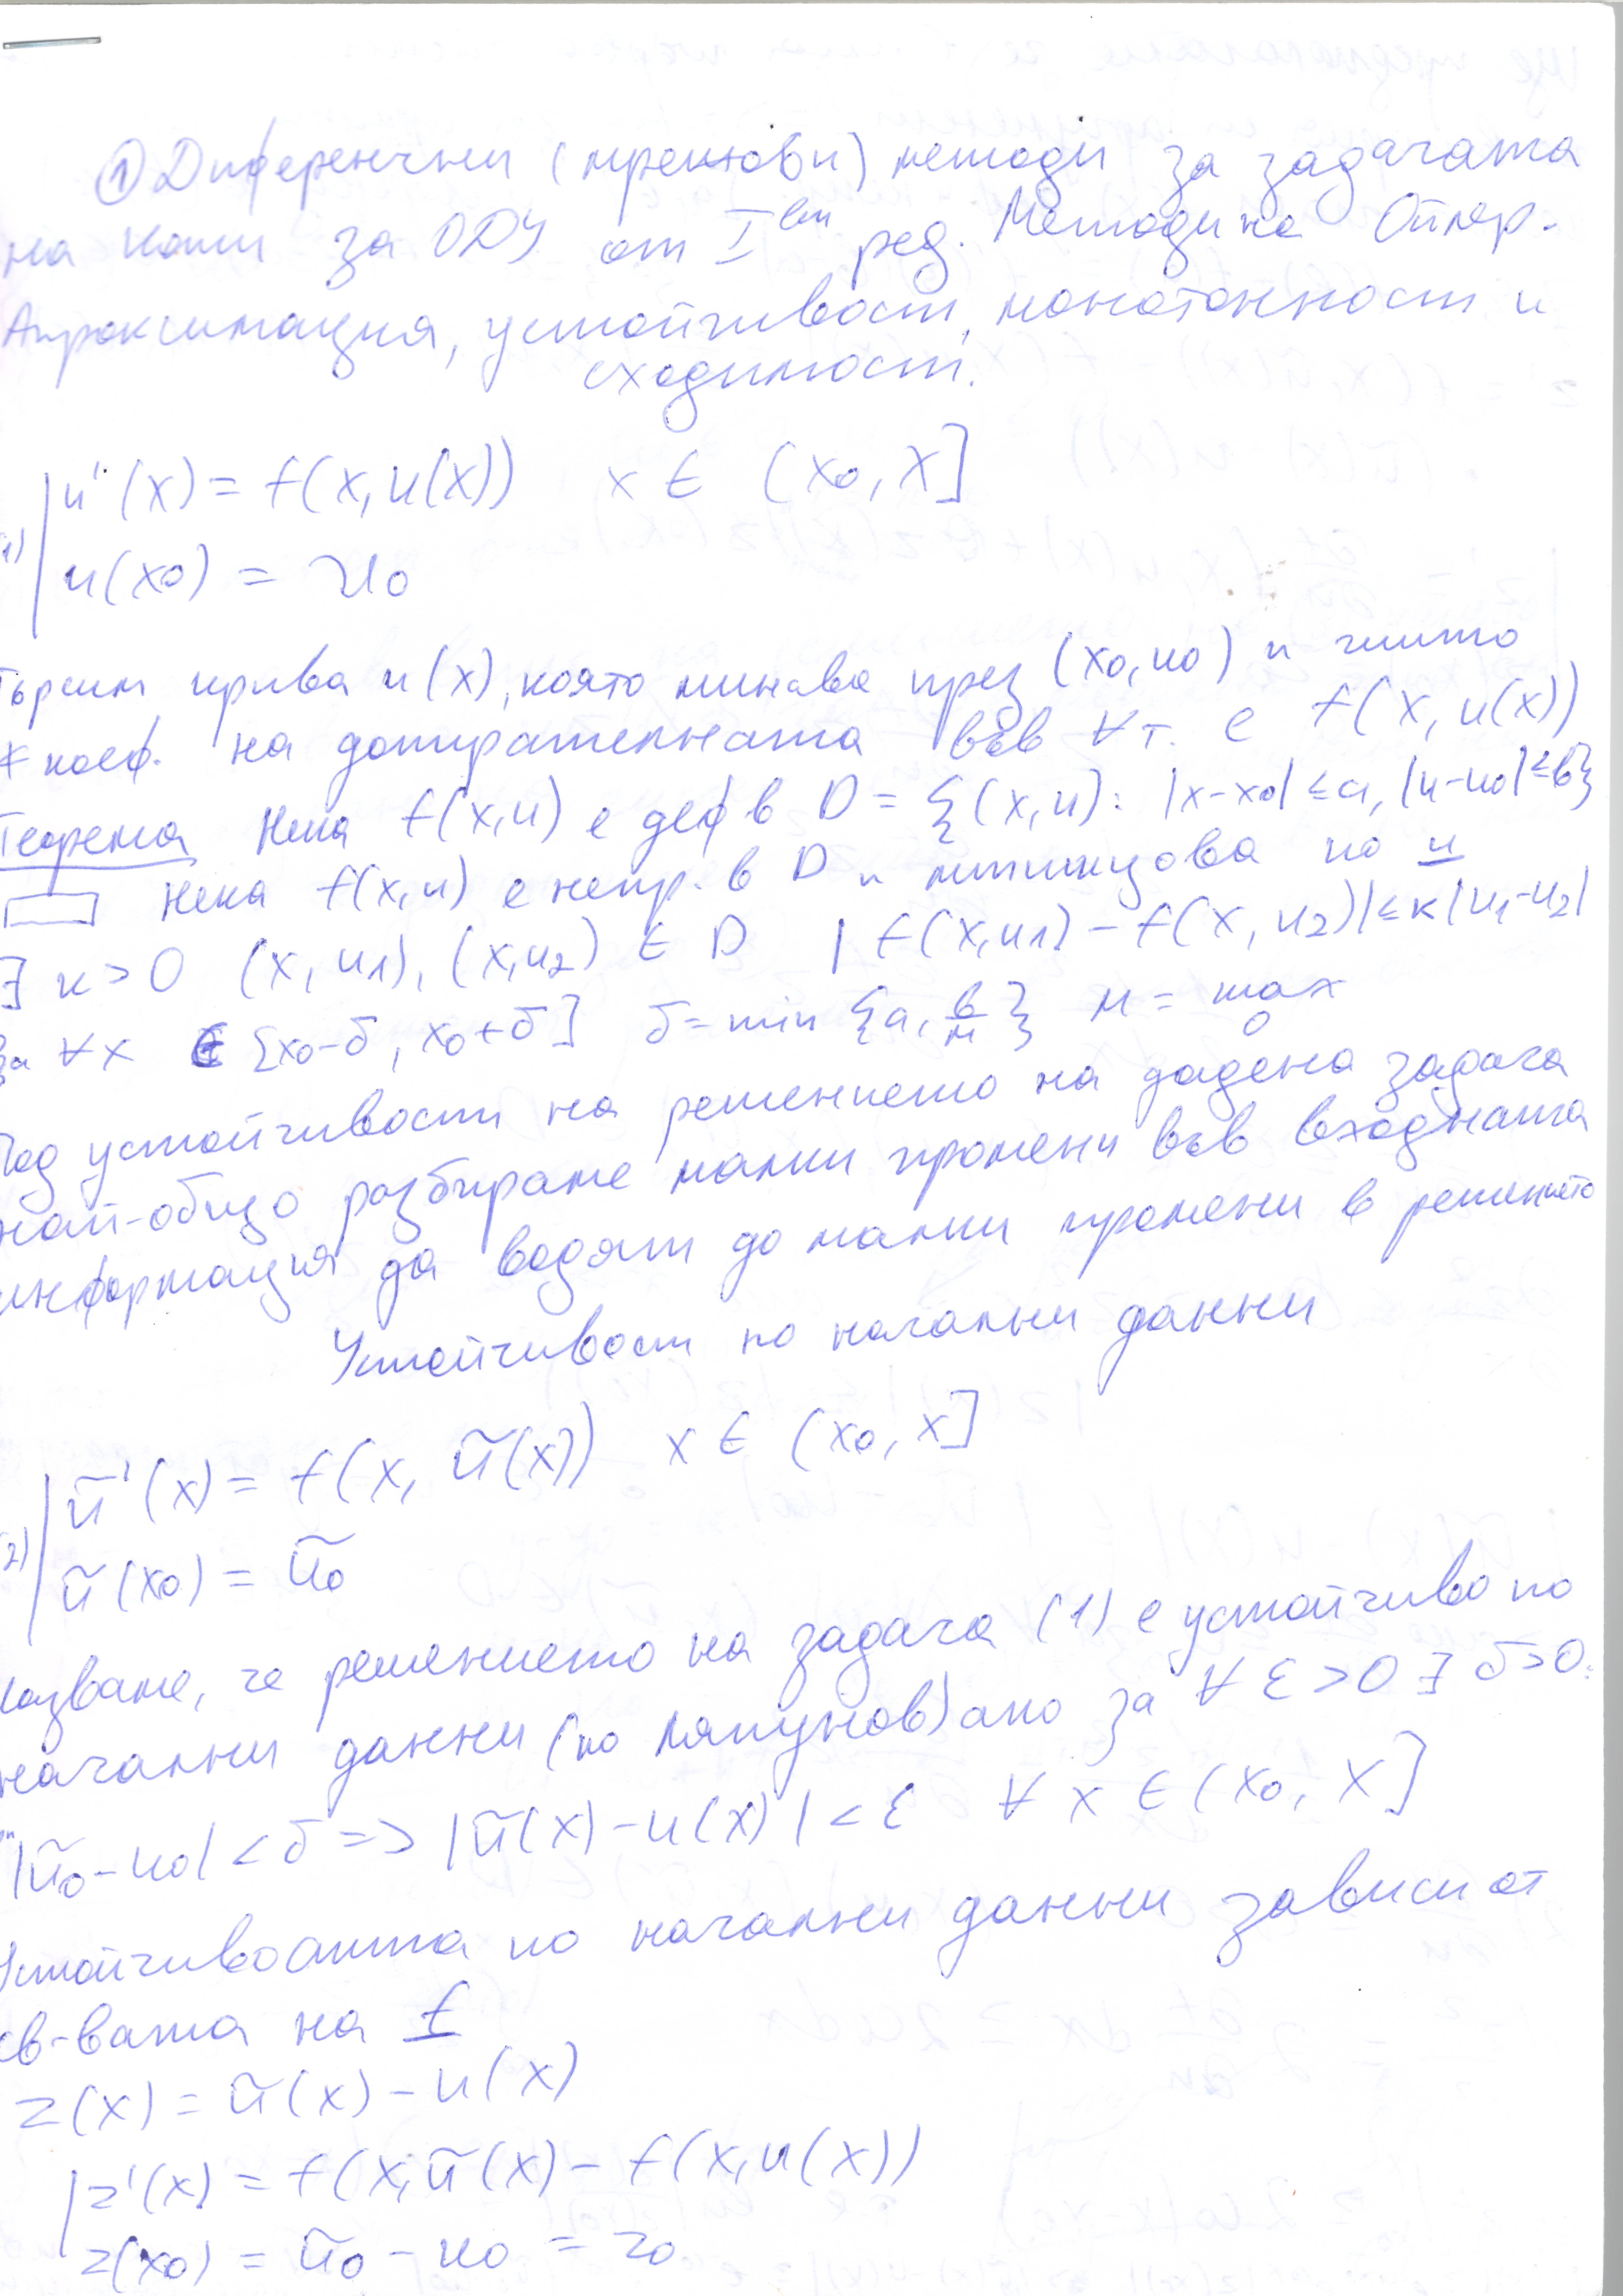 ① Диференчни (мрежови) методи за задачата
на Коши за ОДУ от I ви ред. Методи на Ойлер.
Апроксимация, устойчивост, монотонност и
сходимост.
u'(x) = f(x, u(x)) x ∈ (x0, X]
1)
u(x0) = u0
Търсим крива u(x), която минава през (x0, u0) и чиито
* коеф. на допирателната във ∀ т. е f(x, u(x))
Теорема Нека f(x,u) е деф в D = {(x,u): |x-x0| ≤ a, |u-u0| ≤ b}
Нека f(x,u) е непр. в D и липшицова по u
∃ k > 0 (x, u1), (x, u2) ∈ D |f(x,u1) - f(x, u2)| ≤ k|u1-u2|
за ∀x ∈ [x0-δ, x0+δ] δ = min {a, b/M} M = max D
Под устойчивост на решението на дадена задача
най-общо разбираме малки промени във входната
информация да водят до малки промени в решението
Устойчивост по начални данни
ũ'(x) = f(x, ũ(x)) x ∈ (x0, X]
2)
ũ(x0) = ũ0
Казваме, че решението на задача (1) е устойчиво по
начални данни (по Ляпунов) ако за ∀ ε > 0 ∃ δ > 0:
|ũ0 - u0| < δ => |ũ(x) - u(x)| < ε ∀ x ∈ (x0, X]
Устойчивостта по начални данни зависи от
св-вата на f
z(x) = ũ(x) - u(x)
z'(x) = f(x, ũ(x) - f(x, u(x))
z(x0) = ũ0 - u0 = z0